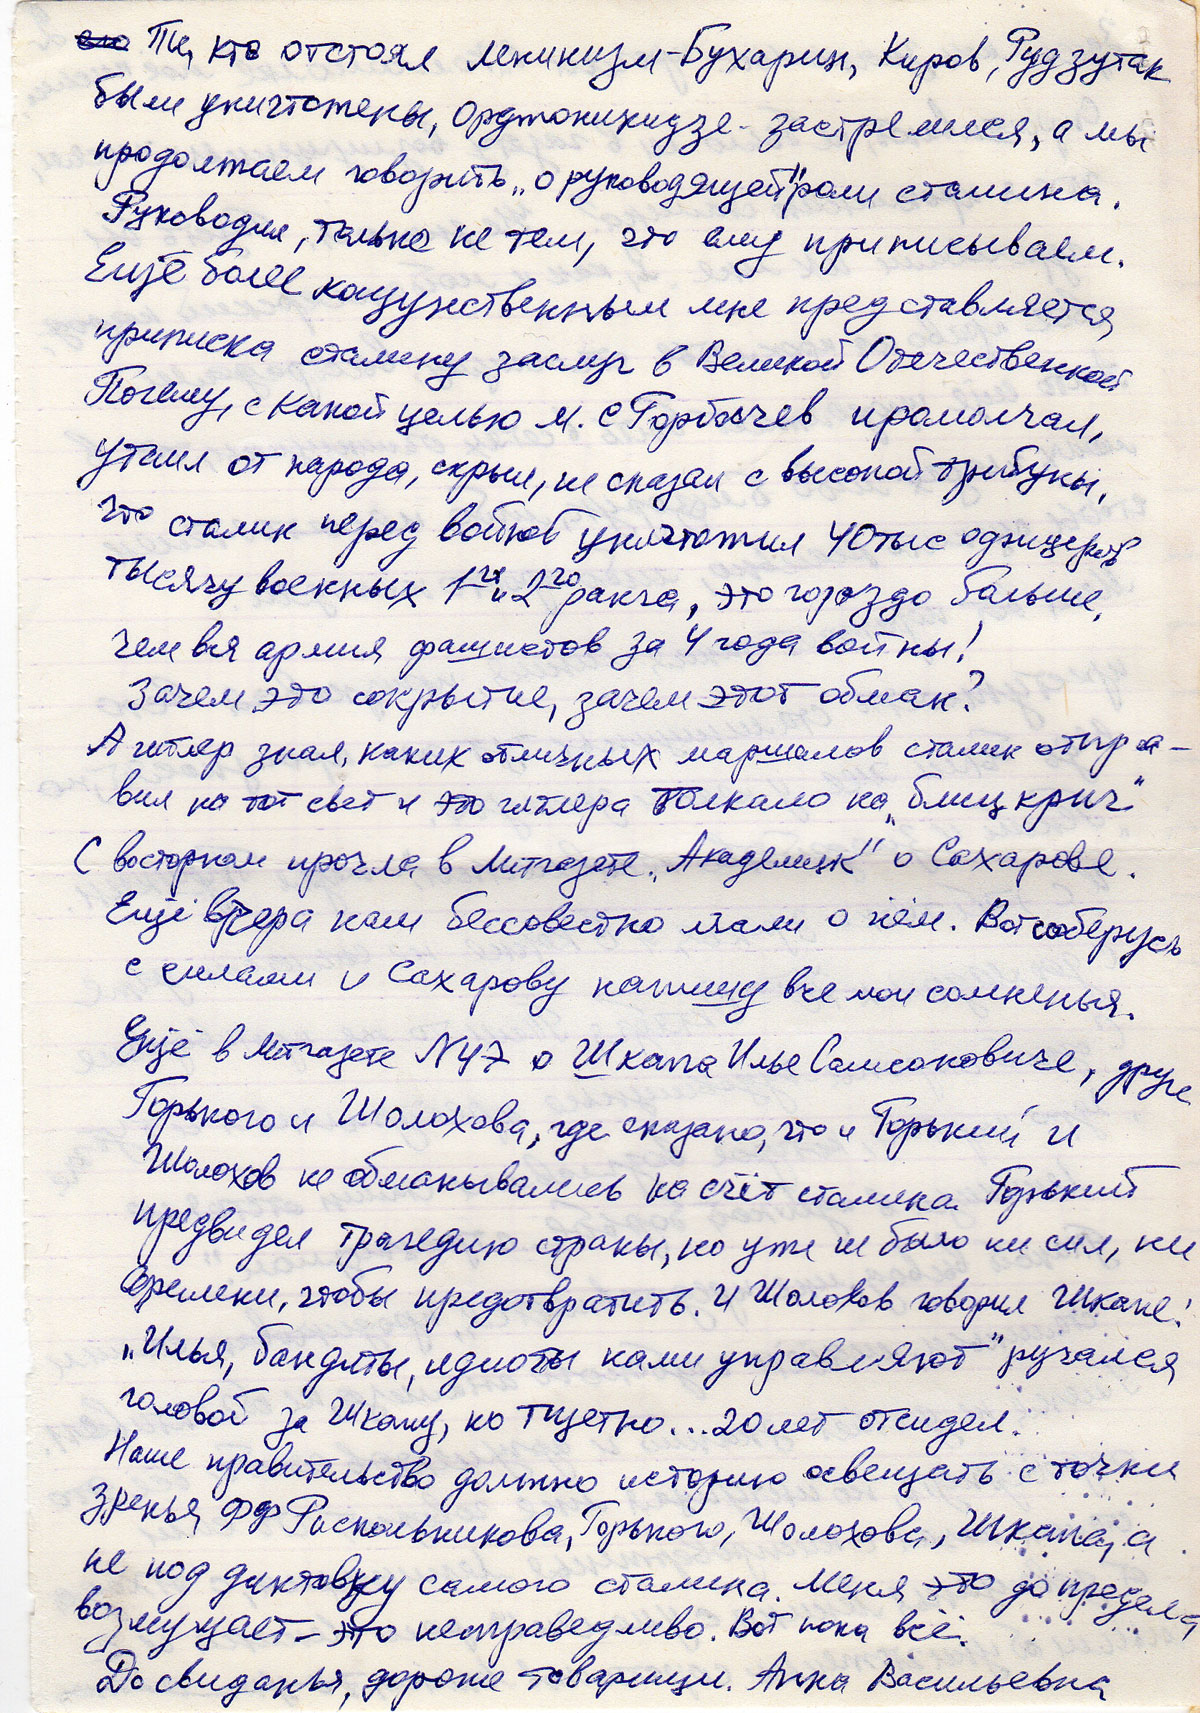 Те, кто отстоял ленинизм - Бухарин, Киров, Рудзутак
были уничтожены, Орджоникидзе - застрелился, а мы
продолжаем говорить „о руководящей" роли сталина.
Руководил, только не тем, что ему приписываем.
Ещё более кощунственным мне представляется
приписка сталину заслуг в Великой Отечественной
Почему, с какой целью М. С Горбачев промолчал,
утаил от народа, скрыл, не сказал с высокой трибуны,
что сталин перед войной уничтожил 40 тыс офицеров
тысячу военных 1го и 2го ранга, это гораздо больше,
чем вся армия фашистов за 4 года войны!
Зачем это сокрытие, зачем этот обман?
А гитлер знал, каких отличных маршалов сталин отпра-
вил на тот свет и это гитлера толкало на „блицкриг"
С восторгом прочла в Литгазете „Академик" о Сахарове.
Ещё вчера нам бессовестно лгали о нём. Вот соберусь
с силами и Сахарову напишу все мои сомненья.
Ещё в Литгазете N47 о Шкапа Илье Самсоновиче, друге
Горького и Шолохова, где сказано, что и Горький и
Шолохов не обманывались на счёт сталина. Горький
предвидел трагедию страны, но уже не было ни сил, ни
времени, чтобы предотвратить. И Шолохов говорил Шкапе:
„Илья, бандиты, идиоты нами управляют" ручался
головой за Шкапу, но тщетно... 20 лет отсидел.
Наше правительство должно историю освещать с точки
зренья ФФ Раскольникова, Горького, Шолохова, Шкапа, а
не под диктовку самого сталина. Меня это до предела
возмущает - это несправедливо. Вот пока всё.
До свиданья, дорогие товарищи. Анна Васильевна